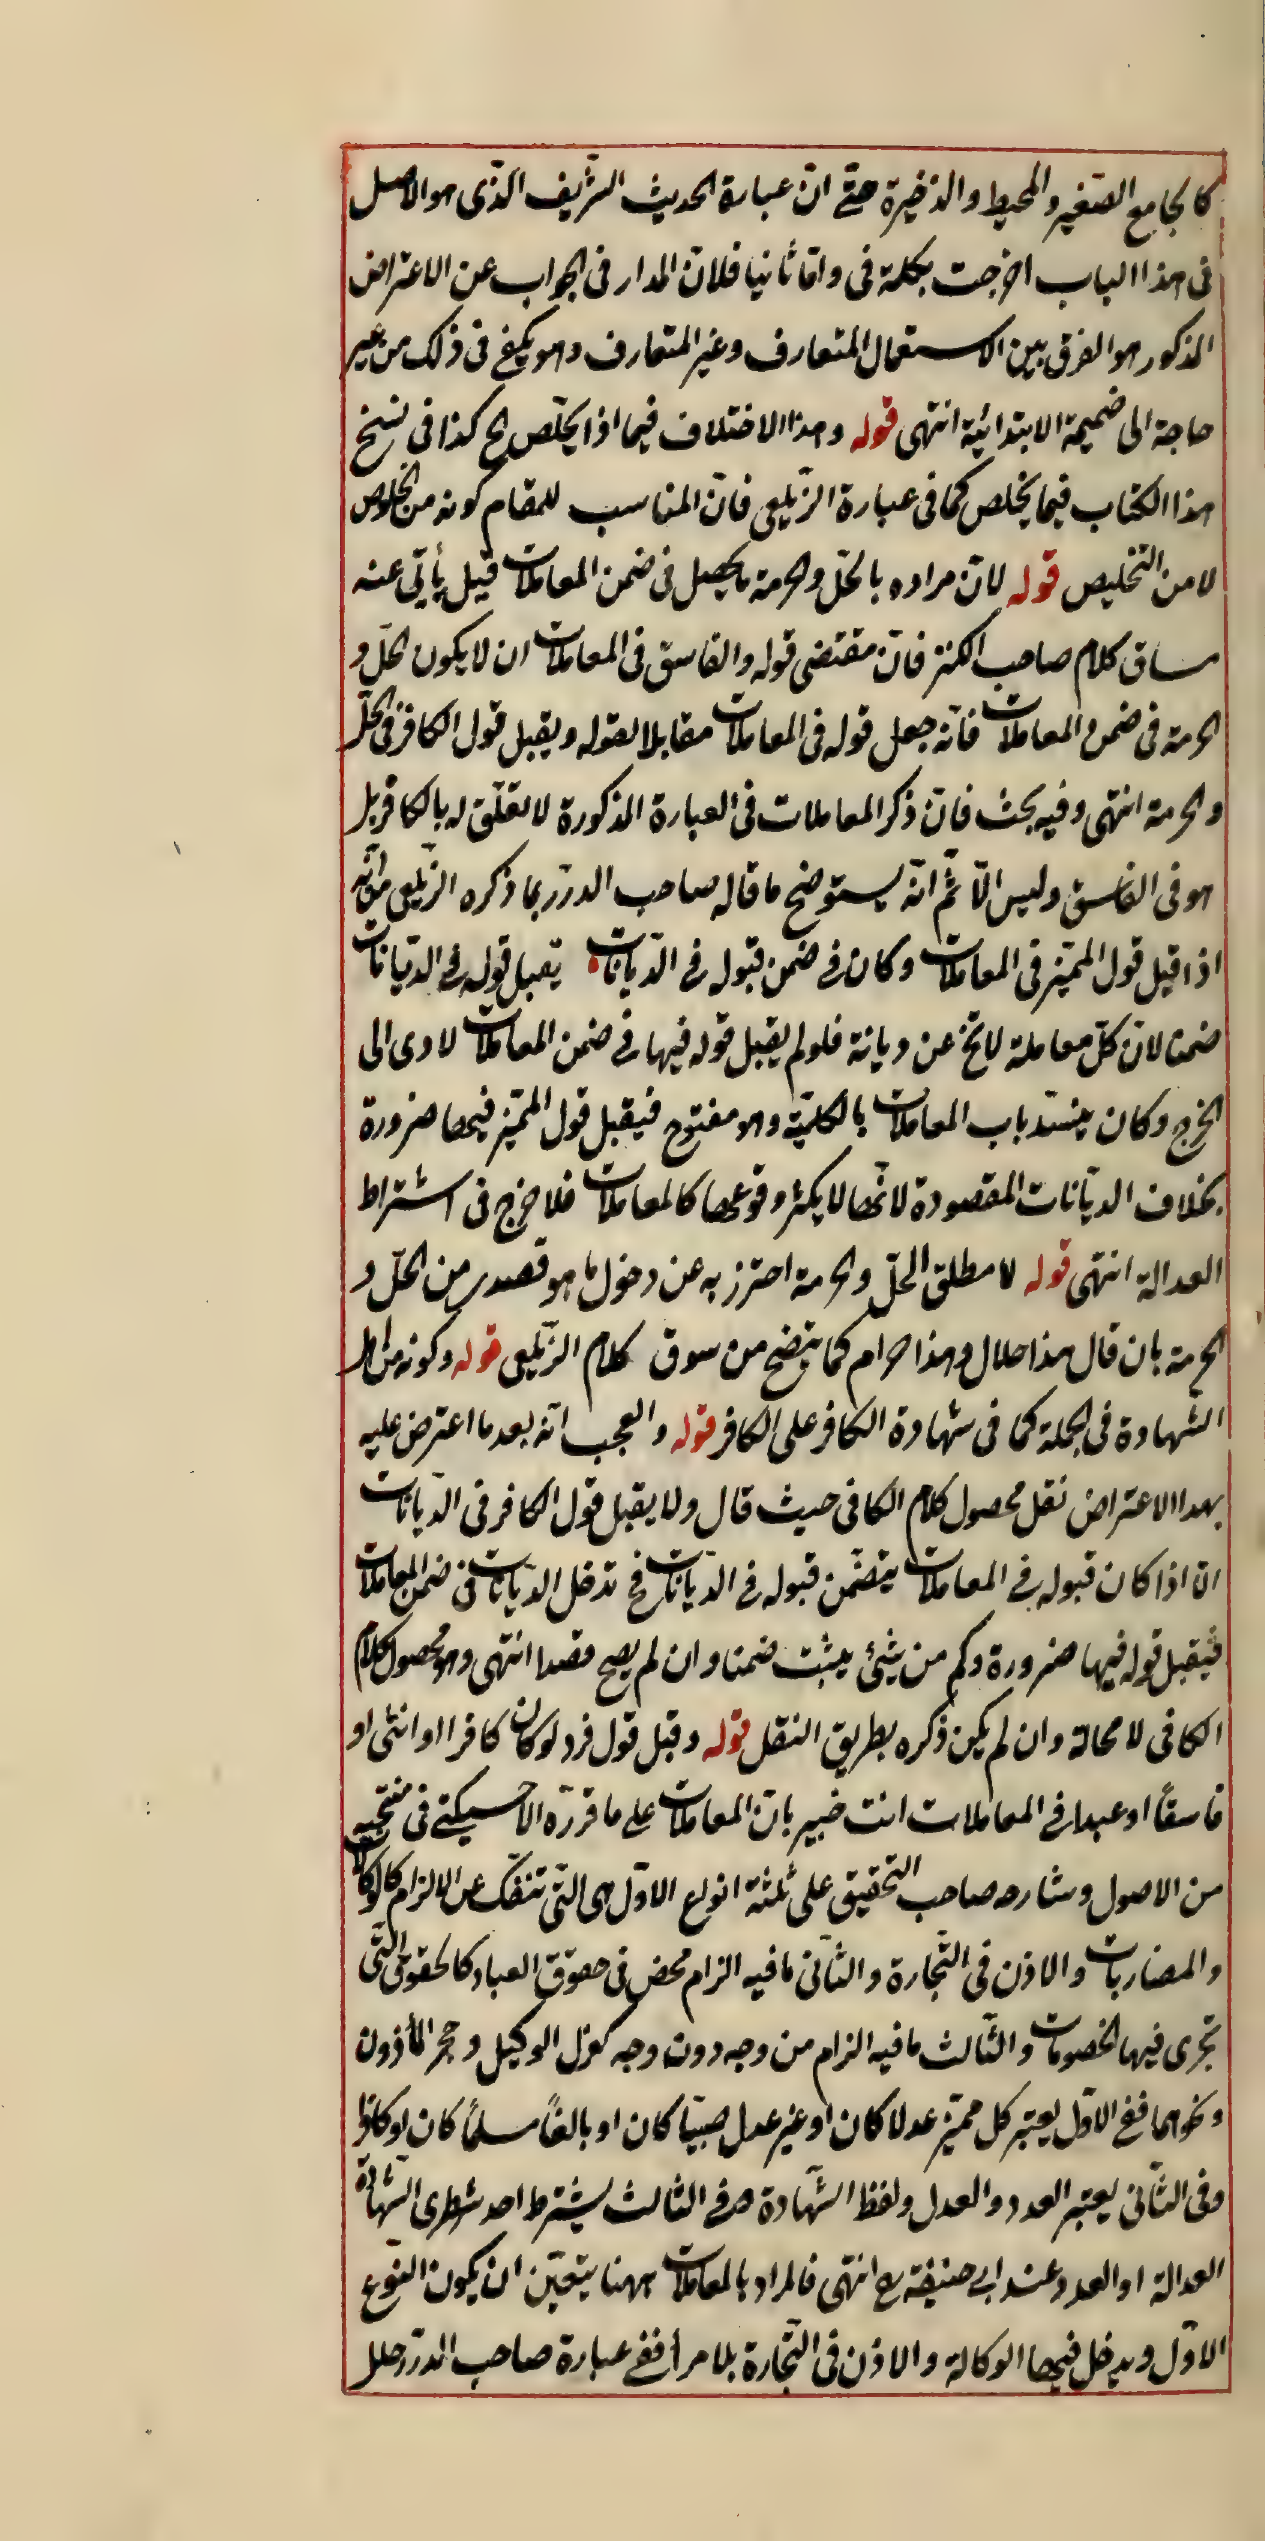 كالجامع الصّغير والمحيط والذخيرة حتّى انّ عبارة الحديث الشّريف الّذى هو الاصل
فى هذا الباب اخرجت بكلمة فى وامّا ثانيا فلانّ المدار فى الجواب عن الاعتراض
المذكور هو الفرق بين الاستعمال المتعارف وغير المتعارف وهو يكفى فى ذلك من غير
حاجة الى ضميمة الابتدائيّة انتهى قوله وهذا الاختلاف فيما اذا يخلّص الخ كذا فى نسخ
هذا الكتاب فيما يخلص كما فى عبارة الزّيلعى فانّ المناسب للمقام كونه من الخلوص
لا من التّخليص قوله لانّ مراده بالحلّ والحرمة ما يحصل فى ضمن المعاملات قيل يأبى عنه
مساق كلام صاحب الكنز فانّ مقتضى قوله والفاسق فى المعاملات ان لا يكون الحلّ و
الحرمة فى ضمن المعاملات فانّه جعل قوله فى المعاملات مقابلا لقوله ويقبل قول الكافر فى الحلّ
والحرمة انتهى وفيه بحث فانّ ذكر المعاملات فى العبارة المذكورة لا تعلّق له بالكافر بل
هو فى الفاسق وليس الّا ثمّ انّه يستوضح ما قاله صاحب الدرر بما ذكره الزّيلعى من انّه
اذا قبل قول المميّز فى المعاملات وكان فى ضمن قبوله فى الدّيانات يقبل قوله فى الدّيانات
ضمنا لانّ كلّ معاملة لا تخ عن ديانة فلو لم يقبل قوله فيها فى ضمن المعاملات لادى الى
الحرج وكان ينسدّ باب المعاملات بالكليّة وهو مفتوح فيقبل قول المميّز فيها ضرورة
بخلاف الديّانات المقصودة لانّها لا يكثر وقوعها كالمعاملات فلا حرج فى اشتراط
العدالة انتهى قوله لا مطلق الحلّ والحرمة احترز به عن دخول ما هو قصدى من الحلّ و
الحرمة بان قال هذا حلال وهذا حرام كما يتضح من سوق كلام الزّيلعى قوله وكونه من اهل
الشّهادة فى الجملة كما فى شهادة الكافر على الكافر قوله والعجب انّه بعد ما اعترض عليه
بهذا الاعتراض نقل محصول كلام الكافى حيث قال ولا يقبل قول الكافر فى الدّيانات
الّا اذا كان قبوله فى المعاملات يتضمّن قبوله فى الدّيانات فح تدخل الدّيانات فى ضمن المعاملات
فيقبل قوله فيها ضرورة وكم من شئ يثبت ضمنا وان لم يصح قصدا انتهى وهو محصول كلام
الكافى لا محالة وان لم يكن ذكره بطريق النقل قوله وقبل قول فرد لو كان كافرا او انثى او
فاسقاً او عبدا فى المعاملات انت خبير بانّ المعاملات على ما قرّره الاخسيكتى فى منتخبه
من الاصول وشارحه صاحب التّحقيق على ثلثة انواع الاوّل هى التّى تنفكّ عن الالزام كالوكالات
والمضاربات والاذن فى التّجارة والثّانى ما فيه الزام محض فى حقوق العباد كالحقوق التّى
تجرى فيها الخصومات والثّالث ما فيه الزام من وجه دون وجه كعزل الوكيل وحجر المأذون
ونحوهما ففى الاوّل يعتبر كل مميّز عدلا كان او غير عدل صبيّا كان او بالغاً مسلماً كان او كافرا
وفى الثّانى يعتبر العدد والعدل ولفظ الشّهادة وفى الثالث يشترط احد شطرى الشّهادة
العدالة او العدد عند ابى حنيفة رح انتهى فالمراد بالمعاملات ههنا يتعيّن ان يكون النّوع
الاوّل ويدخل فيها الوكالة والاذن فى التّجارة بلا مرأ ففى عبارة صاحب الدّرر خلل